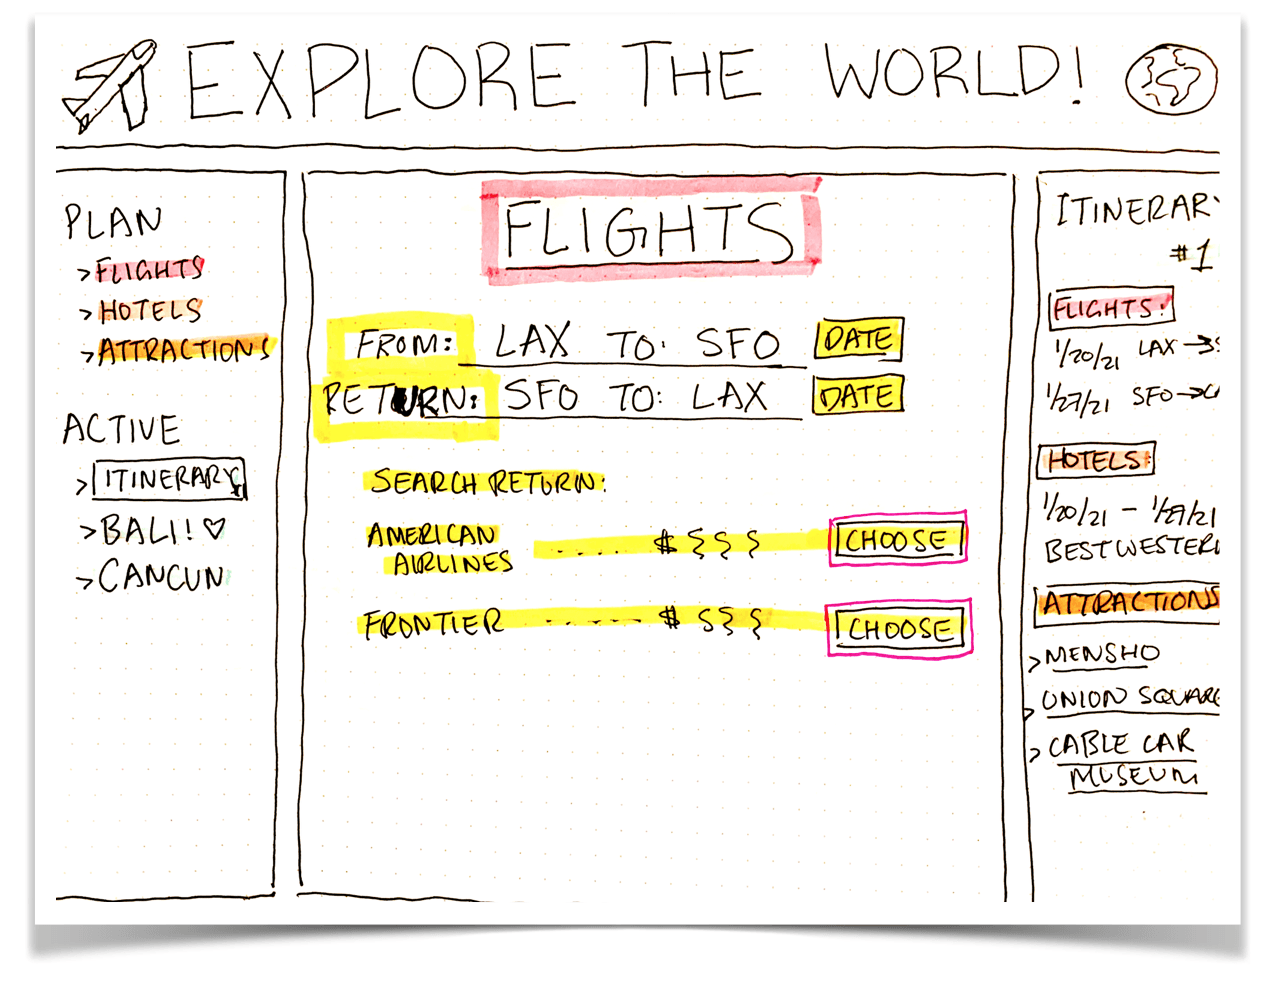 EXPLORE THE WORLD!
PLAN
>FLIGHTS
>HOTELS
>ATTRACTIONS
ACTIVE
>ITINERARY
>BALI!♡
>CANCUN
FLIGHTS
FROM: LAX TO: SFO DATE
RETURN: SFO TO: LAX DATE
SEARCH RETURN:
AMERICAN
AIRLINES ..... $ CHOOSE
FRONTIER ...... $ CHOOSE
ITINERAR
#1
FLIGHTS:
1/20/21 LAX →
1/27/21 SFO →
HOTELS:
1/20/21 - 1/27/21
BEST WESTER
ATTRACTIONS
>MENSHO
>UNION SQUARE
>CABLE CAR
MUSEUM